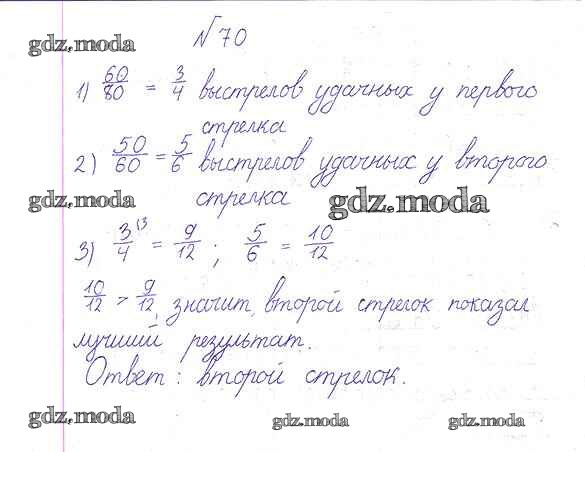 №70
gdz.moda
1) 60/80 = 3/4 выстрелов удачных у первого
стрелка
2) 50/60 = 5/6 выстрелов удачных у второго
gdz.moda стрелка gdz.moda
3) 3/4 ⁽³ = 9/12 ; 5/6 = 10/12
10/12 > 9/12, значит, второй стрелок показал
лучший результат.
Ответ: второй стрелок.
gdz.moda gdz.moda gdz.moda